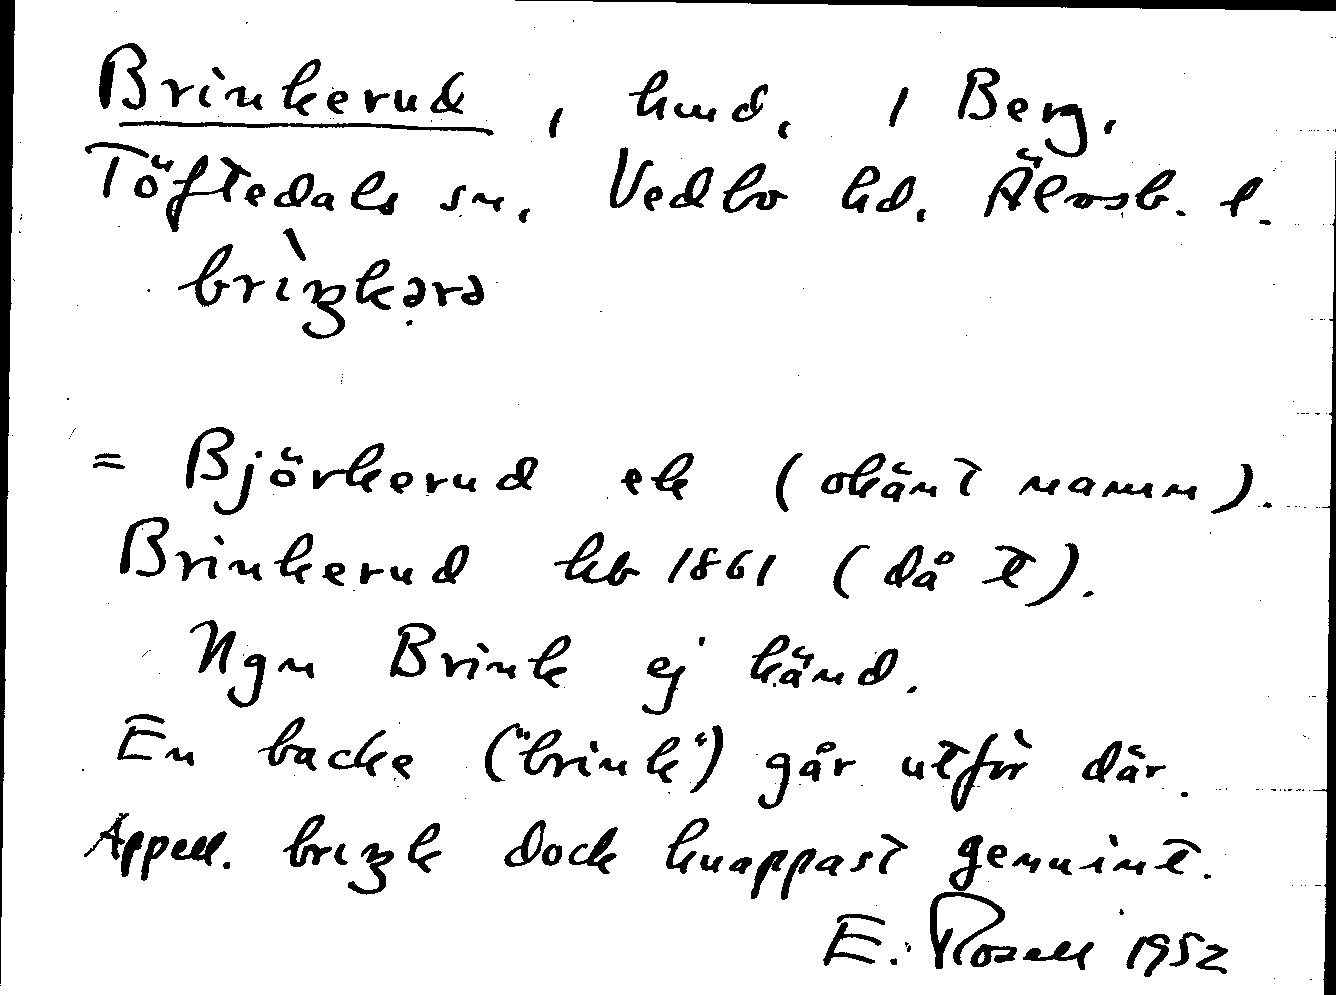 Brinkerud, hmd, i Berg,
Töftedals sn, Vedbo hd, Älvsb. l.
brìŋkərə
= Björkerud ek (okänt namn).
Brinkerud kb 1861 (då t).
Ngn Brink ej känd.
En backe ("brink") går utför där.
Appell. brıŋk dock knappast genuint.
E. Rosell 1952